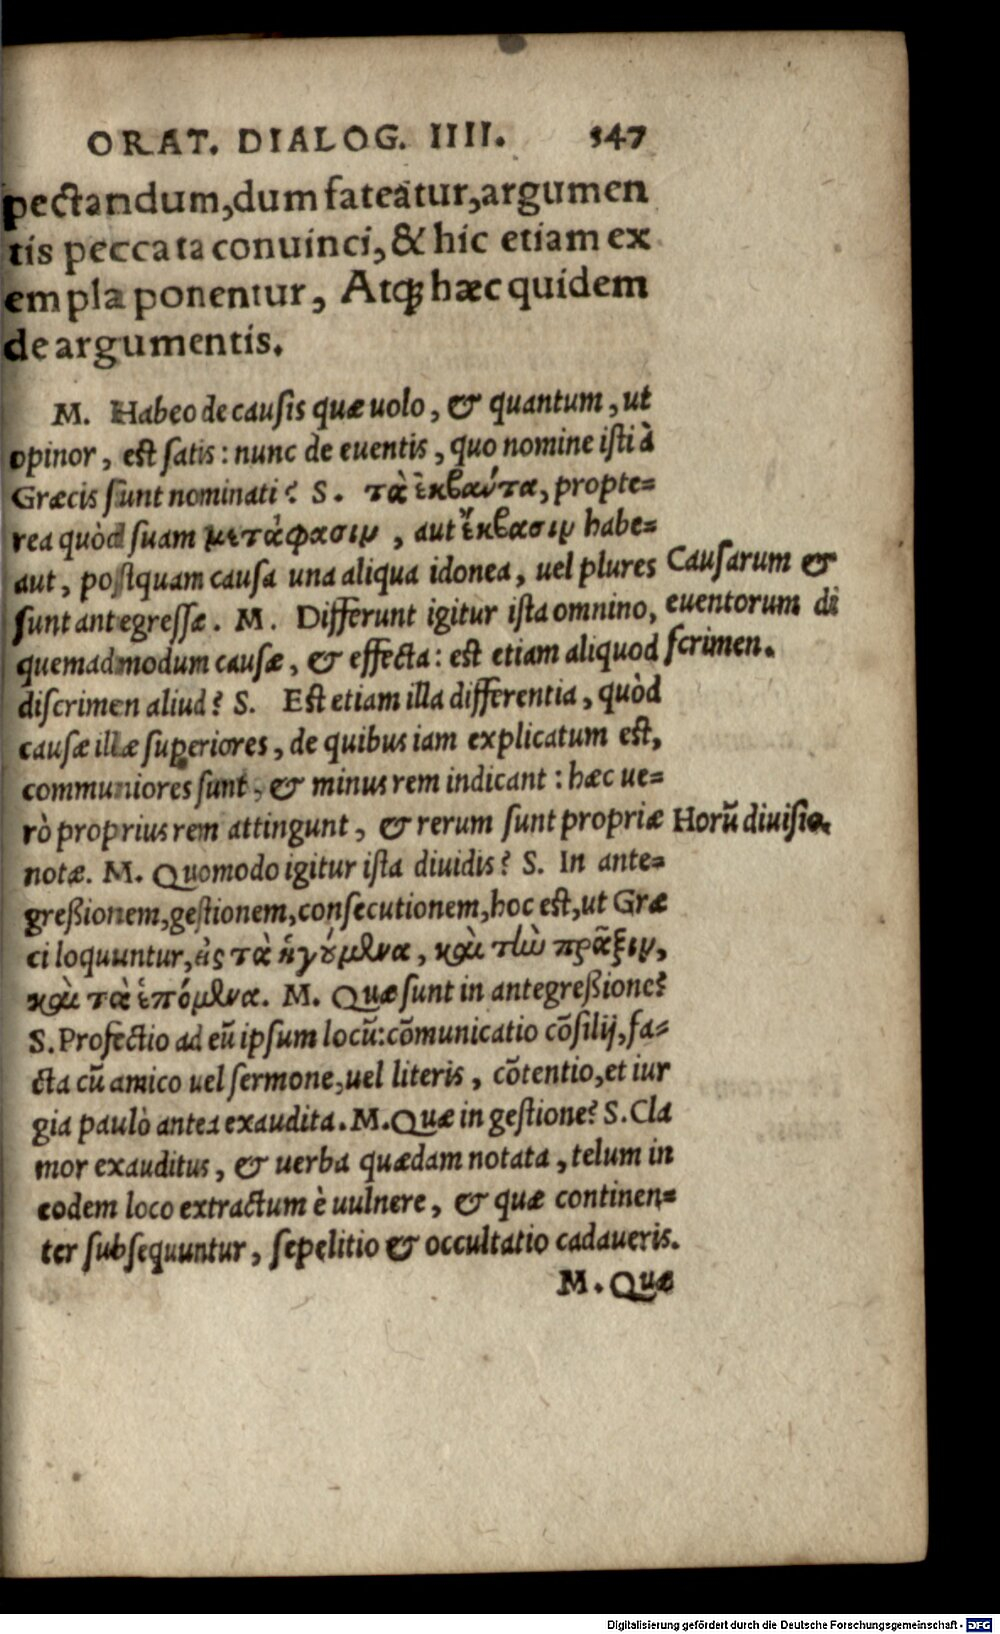 ORAT. DIALOG. IIII. 347
pectandum, dum fateatur, argumen
tis peccata conuinci, & hic etiam ex
empla ponentur, Atq; hæc quidem
de argumentis.
M. Habeo de causis quæ uolo, & quantum, ut
opinor, est satis: nunc de euentis, quo nomine isti à
Græcis sunt nominati? S. τὰ ἐκβαύτα, propte=
rea quòd suam μετάφασιν, aut ἔκβασιν habe=
aut, postquam causa una aliqua idonea, uel plures
sunt antegressæ. M. Differunt igitur ista omnino,
quemadmodum causæ, & effecta: est etiam aliquod
Causarum &
euentorum di
scrimen.
discrimen aliud? S. Est etiam illa differentia, quòd
causæ illæ superiores, de quibus iam explicatum est,
communiores sunt, & minus rem indicant: hæc ue=
rò proprius rem attingunt, & rerum sunt propriæ
Horū diuisio.
notæ. M. Quomodo igitur ista diuidis? S. In ante=
greßionem, gestionem, consecutionem, hoc est, ut Græ
ci loquuntur, εἰς τὰ ἡγούμενα, καὶ τὴν πρᾶξιν,
καὶ τὰ ἑπόμενα. M. Quæ sunt in antegreßione?
S. Profectio ad eū ipsum locū: cōmunicatio cōsilij, fa=
cta cū amico uel sermone, uel literis, cōtentio, et iur
gia paulò antea exaudita. M. Quæ in gestione? S. Cla
mor exauditus, & uerba quædam notata, telum in
eodem loco extractum è uulnere, & quæ continen=
ter subsequuntur, sepelitio & occultatio cadaueris.
M. Quæ
Digitalisierung gefördert durch die Deutsche Forschungsgemeinschaft - DFG